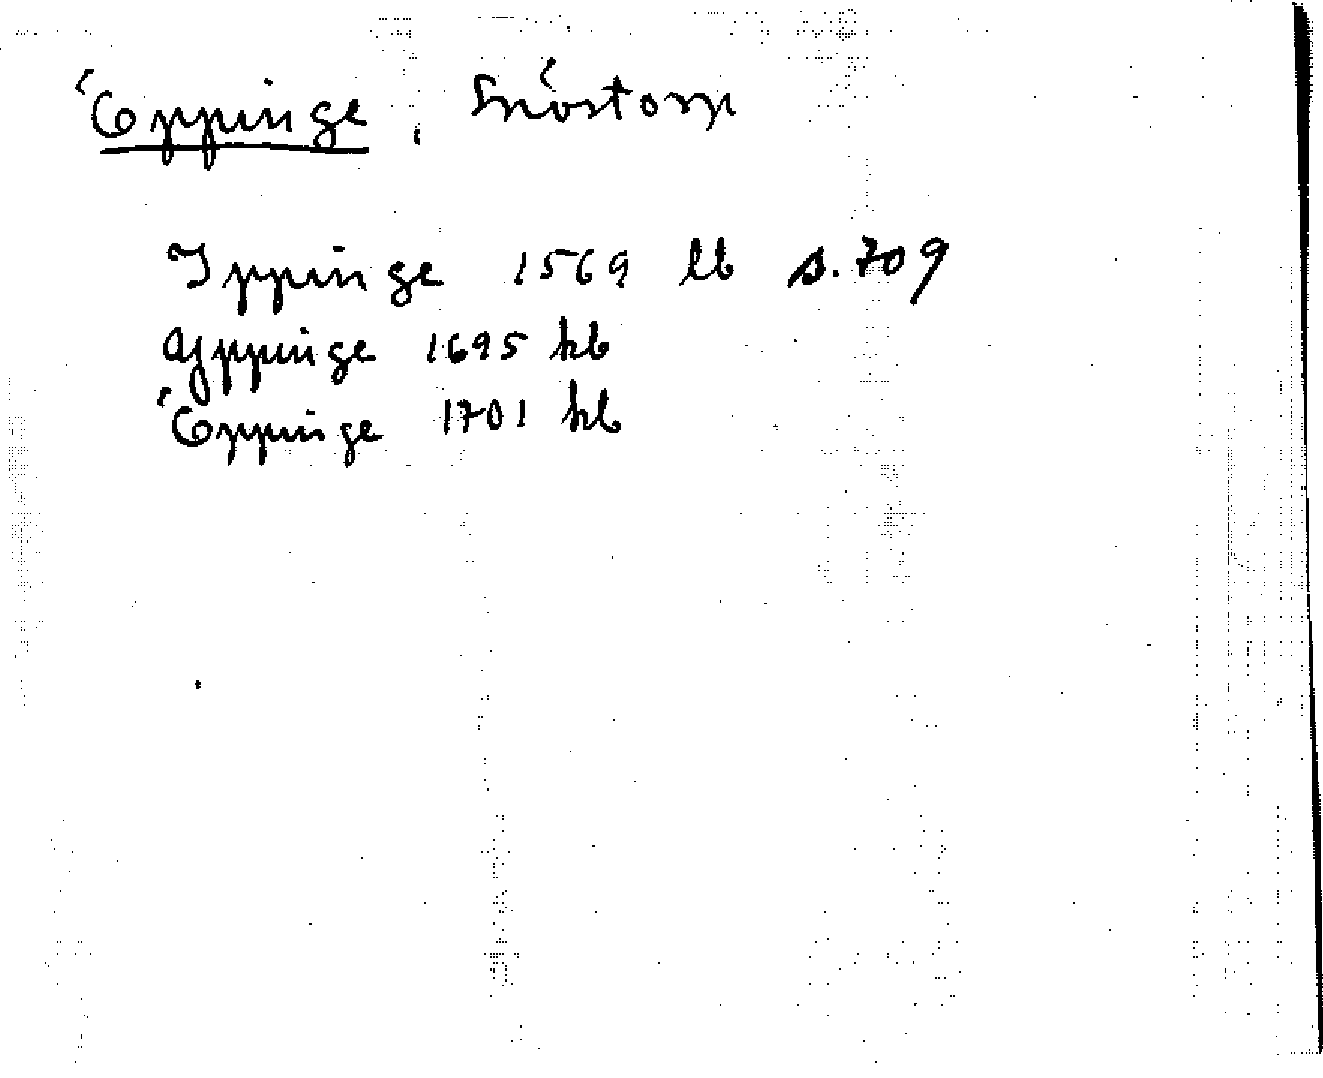 Öppinge, Snöstorp
Ippinge 1569 lb s. 709
Yppinge 1695 kb
Öppinge 1701 kb